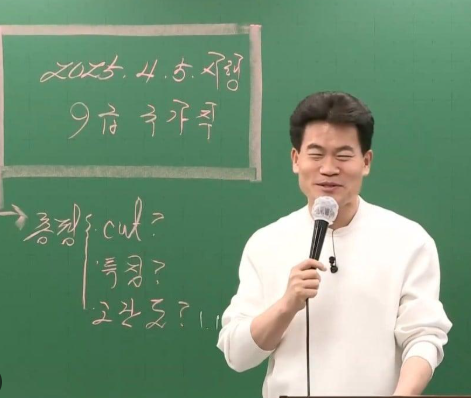 2025.4.5. 시행
9급 국가직
총평 cut?
특징?
고난도?